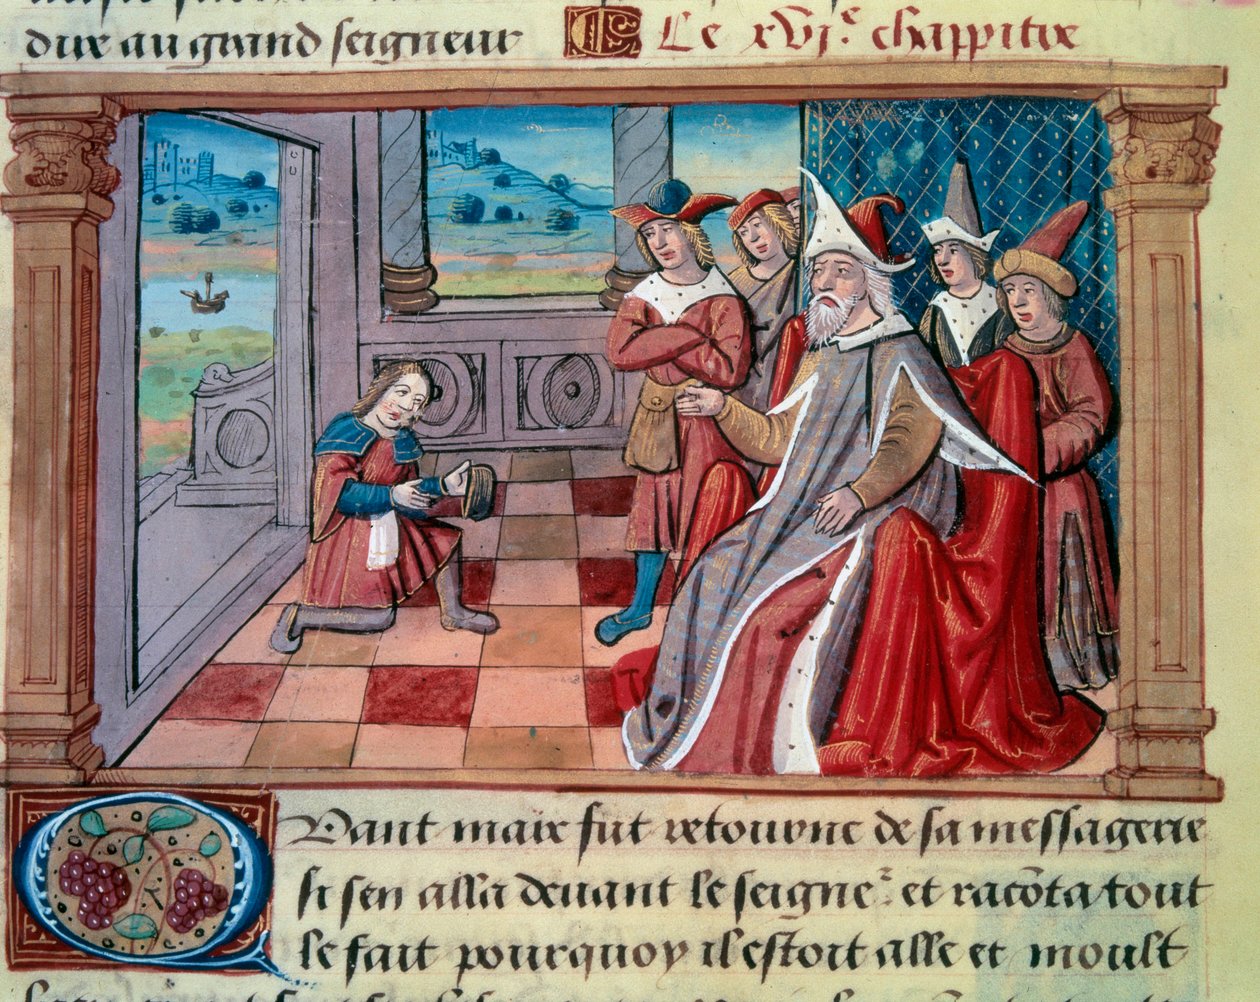 dux au grand seigneur Le xvj.e chappitre
Quant maix fut retourne de sa messagerie
si sen alla devant le seigner et raconta tout
le fait pourquoy il estoit alle et moult